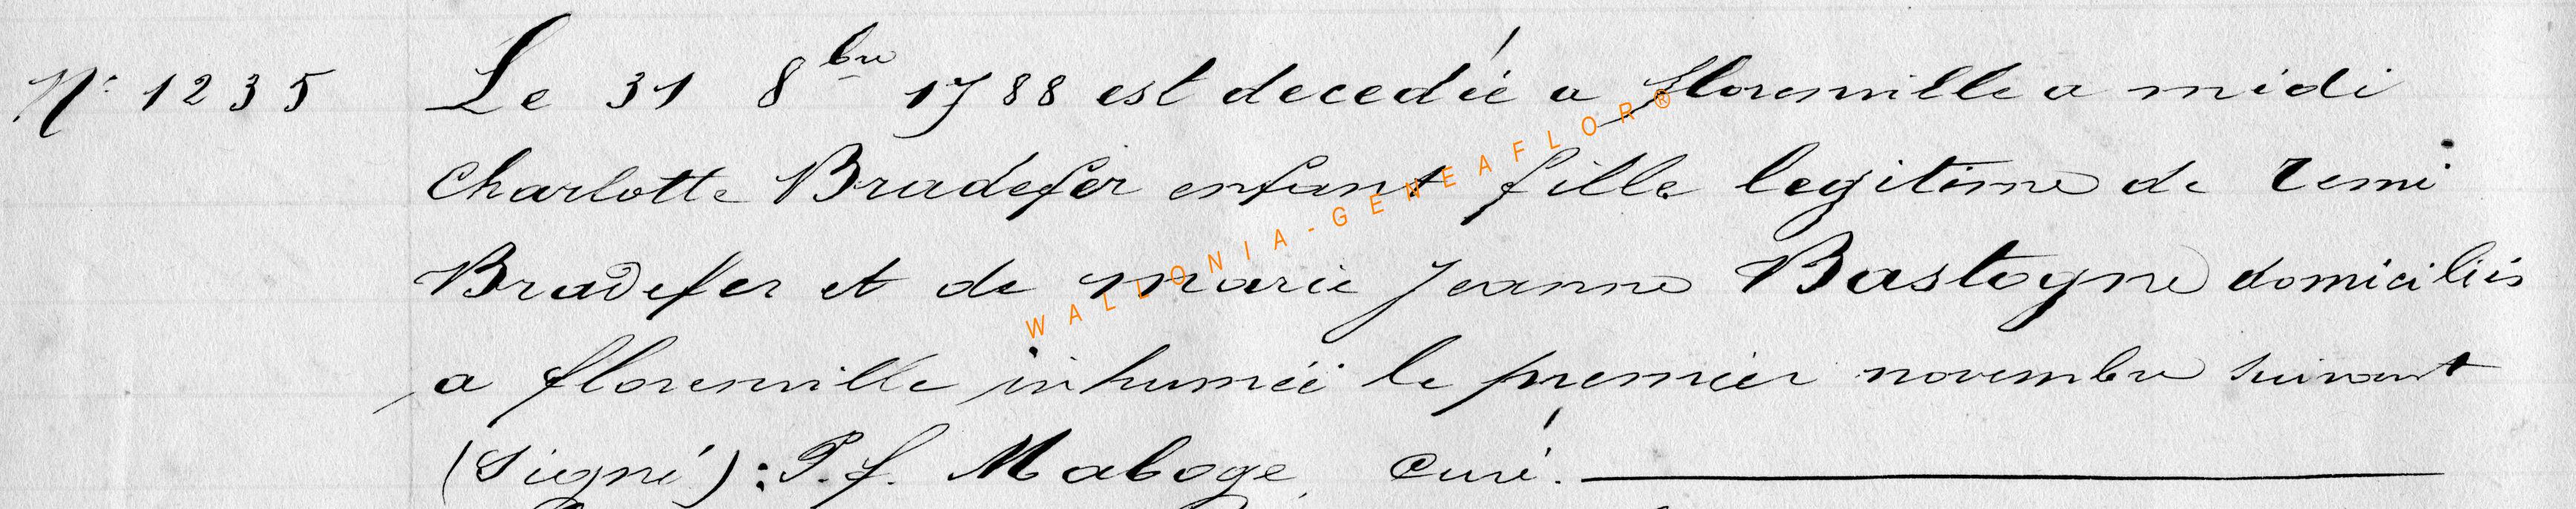 N° 1235 Le 31 8bre 1788 est decedée a florenville a midi
Charlotte Bradefer enfant fille legitime de remi
Bradefer et de marie Jeanne Bastogne domiciliés
a florenville inhumée le premier novembre suivant
(Signé): P. f. Maboge, Curé.
WALLONIA-GENEAFLOR®